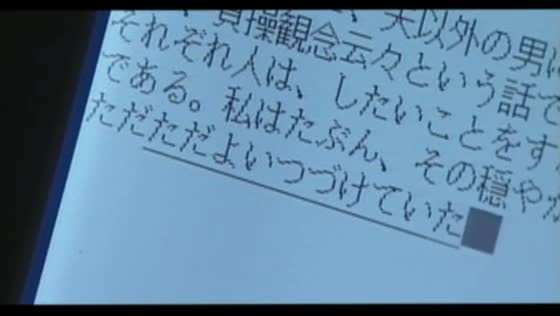 、貞操観念云々という話で
それぞれ人は、したいことをす
である。私はたぶん、その穏やか
ただただよいつづけていた